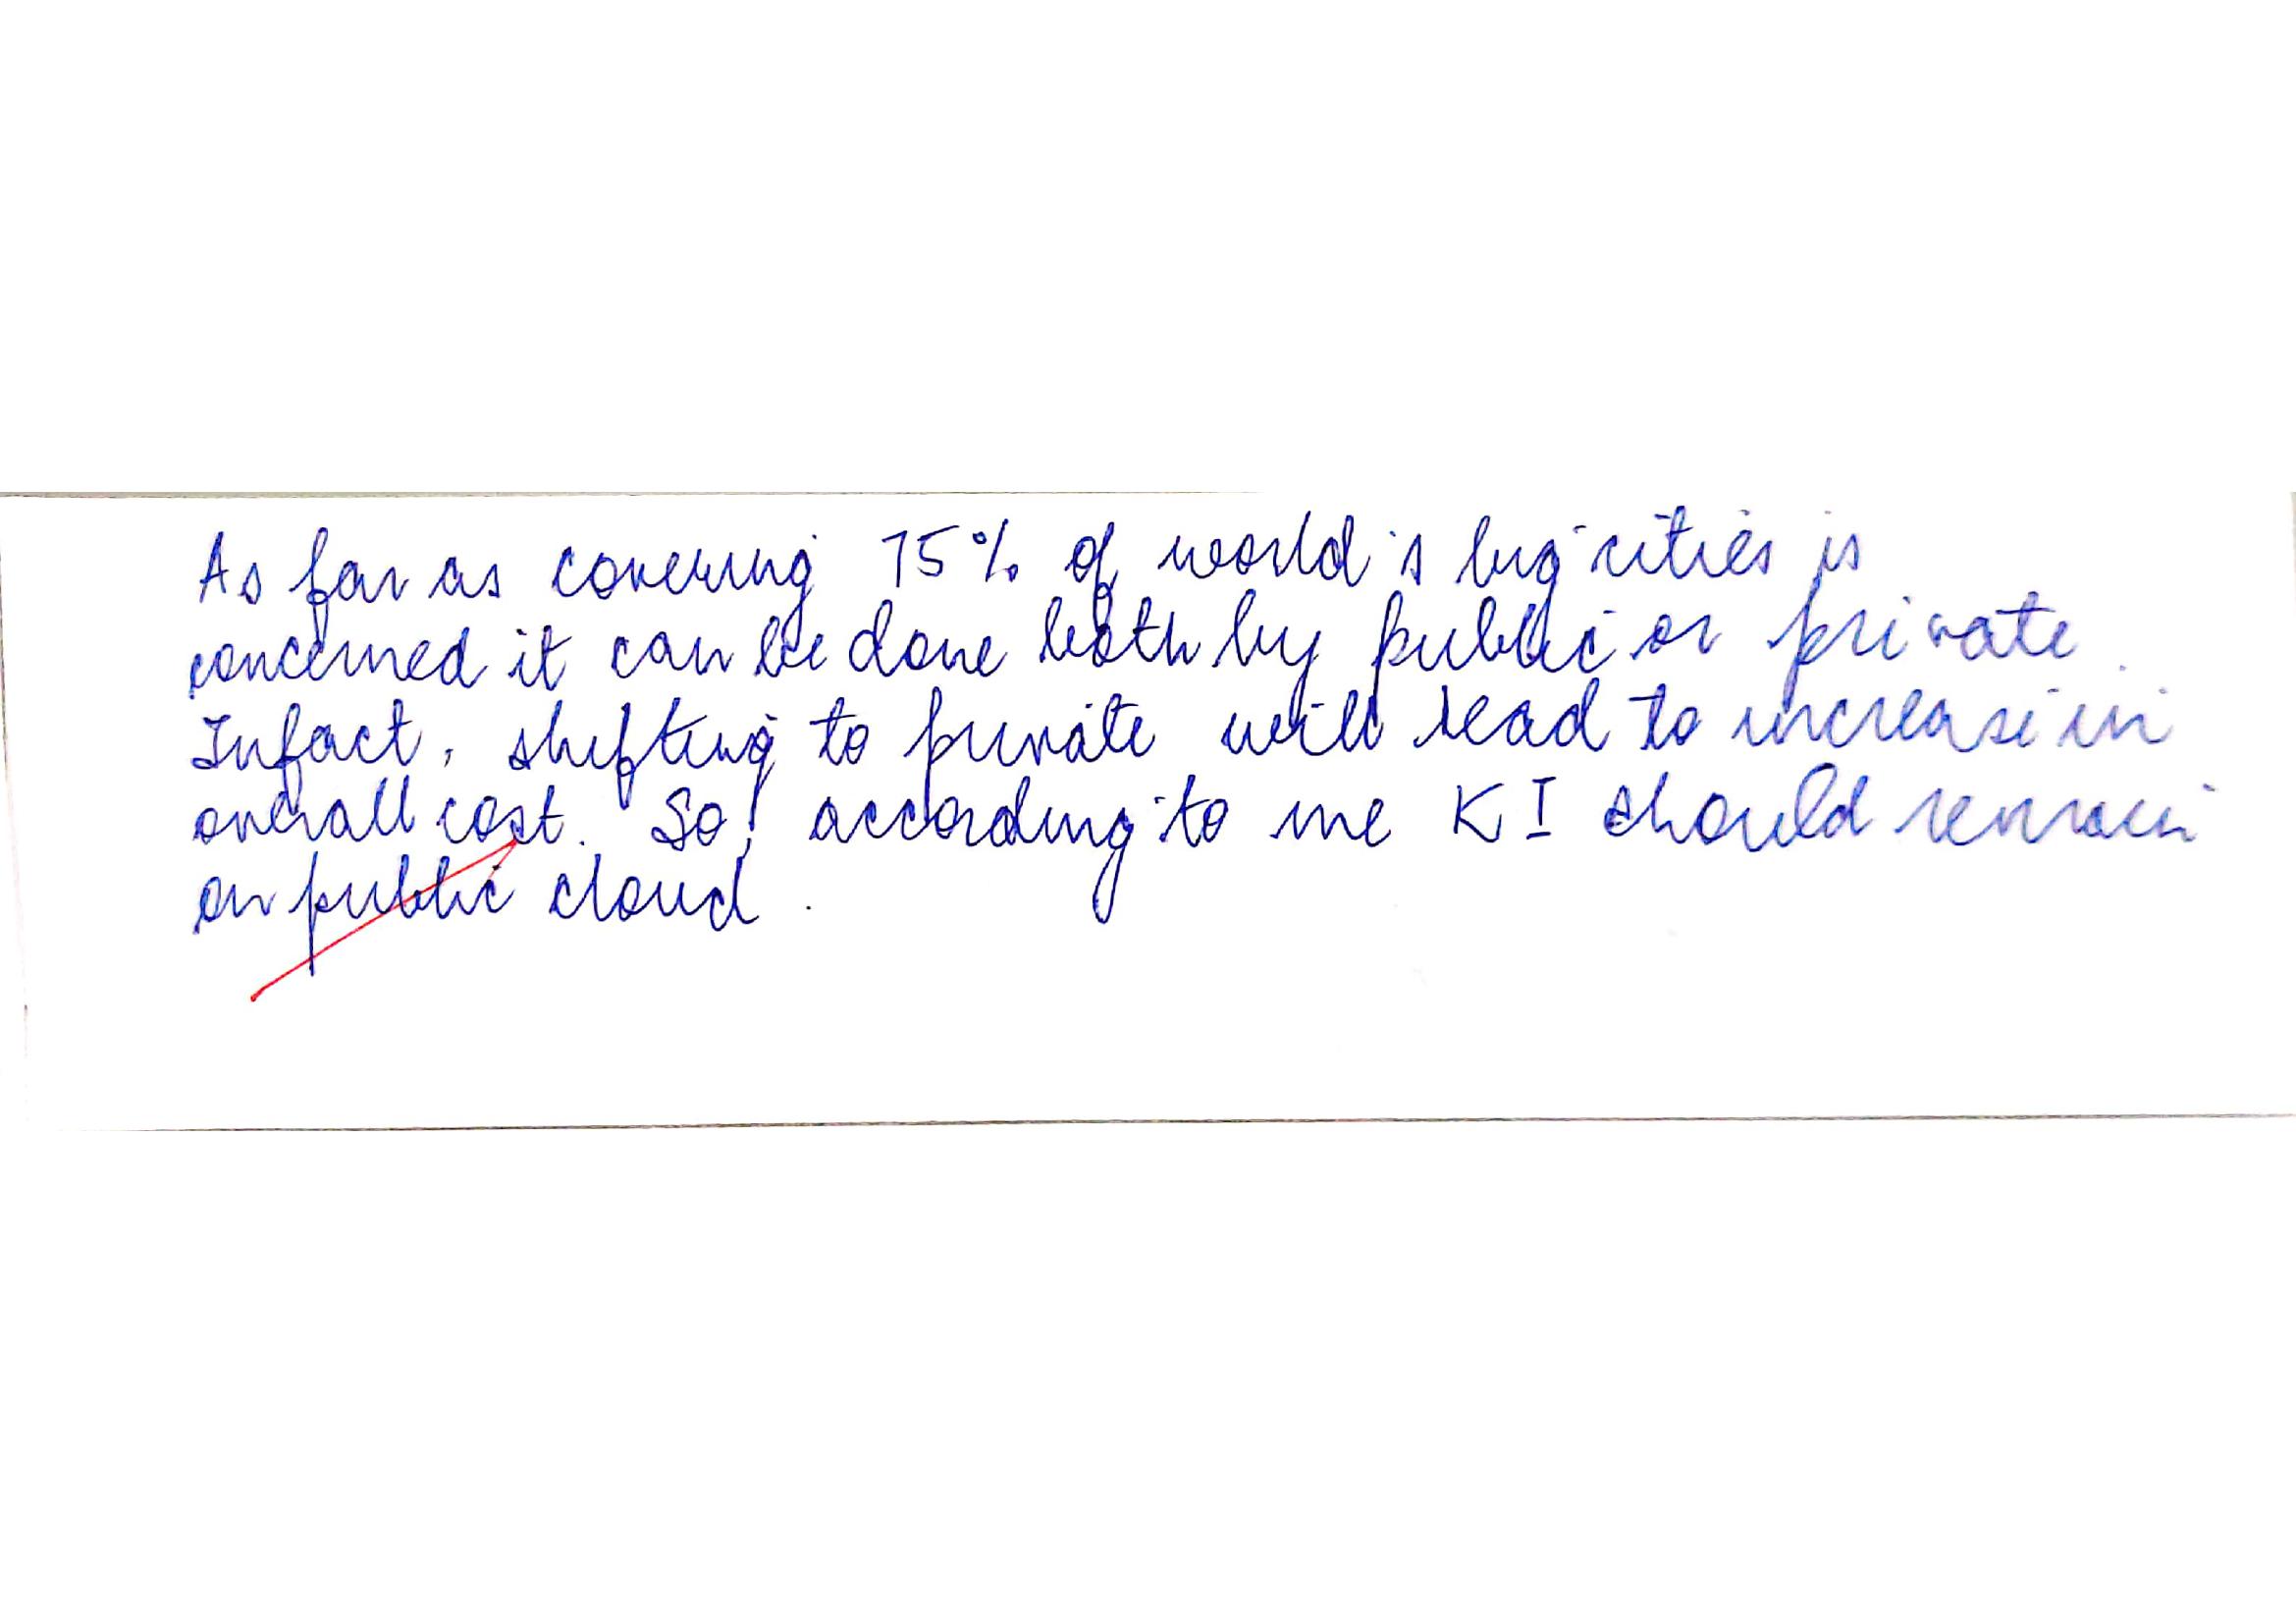 As far as covering 75% of world's big cities is
concerned it can be done both by public or private.
Infact, shifting to private will lead to increase in
overall cost. So, according to me KI should remain
on public cloud.